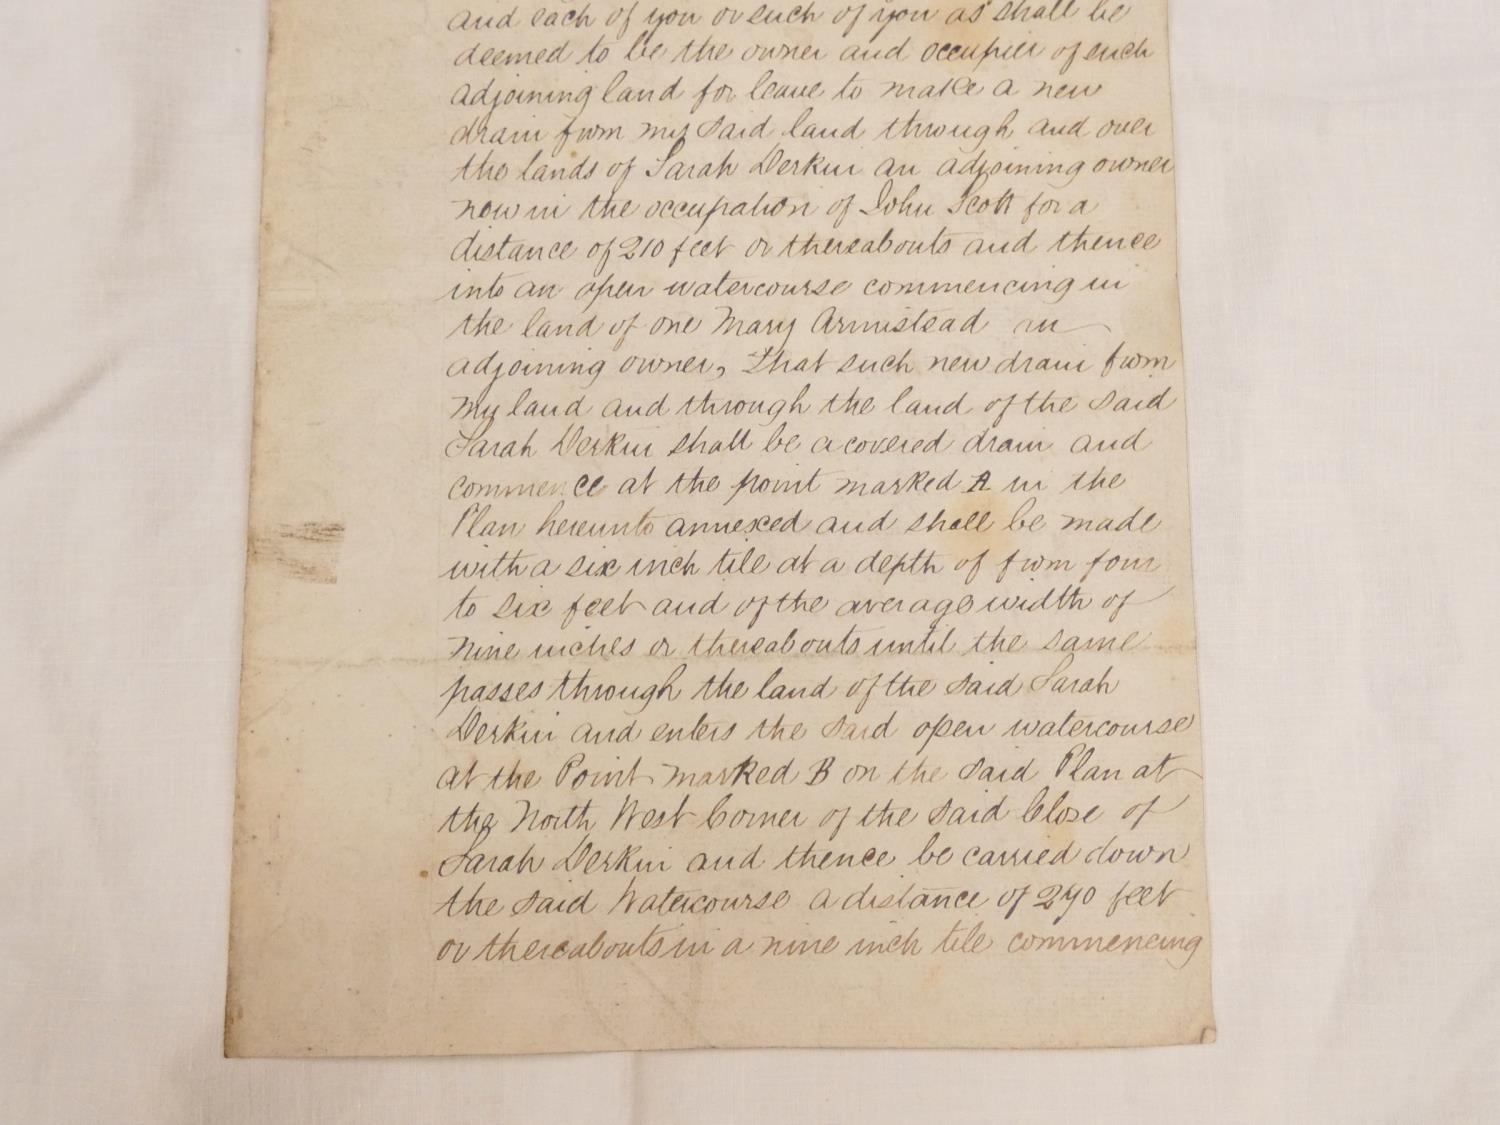 and each of you or such of you as shall be
deemed to be the owner and occupier of such
adjoining land for leave to make a new
drain from my said land through and over
the lands of Sarah Derkin an adjoining owner
now in the occupation of John Scott for a
distance of 210 feet or thereabouts and thence
into an open watercourse commencing in
the land of one Mary Armistead an
adjoining owner, that such new drain from
my land and through the land of the said
Sarah Derkin shall be a covered drain and
commence at the point marked A in the
Plan hereunto annexed and shall be made
with a six inch tile at a depth of from four
to six feet and of the average width of
nine inches or thereabouts until the same
passes through the land of the said Sarah
Derkin and enters the said open watercourse
at the Point marked B on the said Plan at
the North West Corner of the said Close of
Sarah Derkin and thence be carried down
the said Watercourse a distance of feet
or thereabouts in a nine inch tile commencing